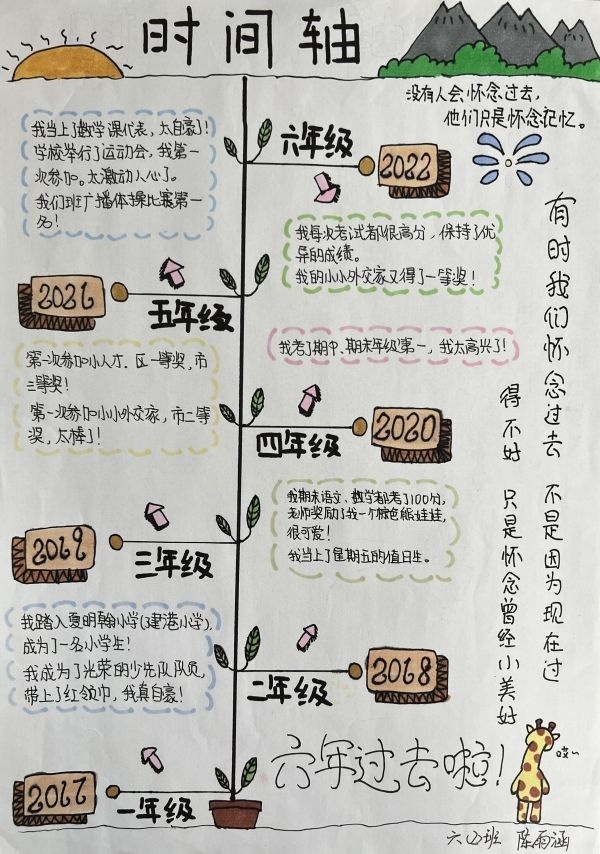 时间轴
没有人会怀念过去,
他们只是怀念记忆。
我当上了数学课代表,太自豪了!
学校举行了运动会,我第一
次参加。太激动人心了。
我们班广播体操比赛第一
名!
六年级
2022
我每次考试都很高分,保持了优
异的成绩。
我的小小外交家又得了一等奖!
2021
五年级
第一次参加小人才,区一等奖,市
三等奖!
第一次参加小小外交家,市二等
奖,太棒了!
我考了期中、期末年级第一,我太高兴了!
四年级
2020
我期末语文、数学都考了100分,
老师奖励了我一个棕色熊娃娃,
很可爱!
我当上了星期五的值日生。
2019
三年级
我踏入夏明翰小学(建港小学),
成为了一名小学生!
我成为了光荣的少先队队员,
带上了红领巾,我真自豪!
二年级
2018
2017
一年级
有时我们怀念过去 不是因为现在过
得不好 只是怀念曾经小美好
六年过去啦!
哎~
六(2)班 陈雨涵